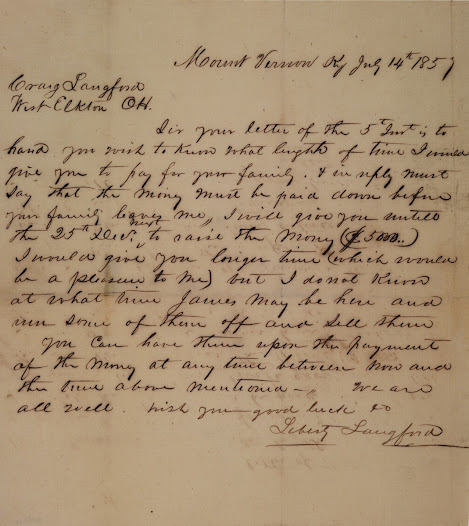 Mount Vernon Ky July 14th 1857
Craig Langford
West Elkton OH.
Sir your letter of the 5th Inst is to
hand you wish to know what lenght of time I would
give you to pay for your family. & in reply must
say that the money must be paid down before
your family leaves me, I will give you untill
the 25th Dec. next to raise the money ($500..)
I would give you longer time (which would
be a pleasure to me) but I do not know
at what time James may be here and
run some of them off and sell them
You can have them upon the payment
of the money at any time between now and
the time above mentioned — We are
all well. wish you good luck &c
Liberty Langford